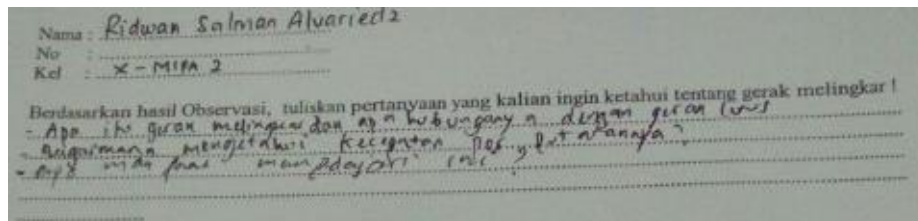 Nama : Ridwan Salman Alvariedz
No :
Kel : X - MIPA 2
Berdasarkan hasil Observasi, tuliskan pertanyaan yang kalian ingin ketahui tentang gerak melingkar !
- Apa itu gerak melingkar dan apa hubungannya dengan gerak lurus
- Bagaimana mengetahui kecepatan putarannya ?
- ini ?